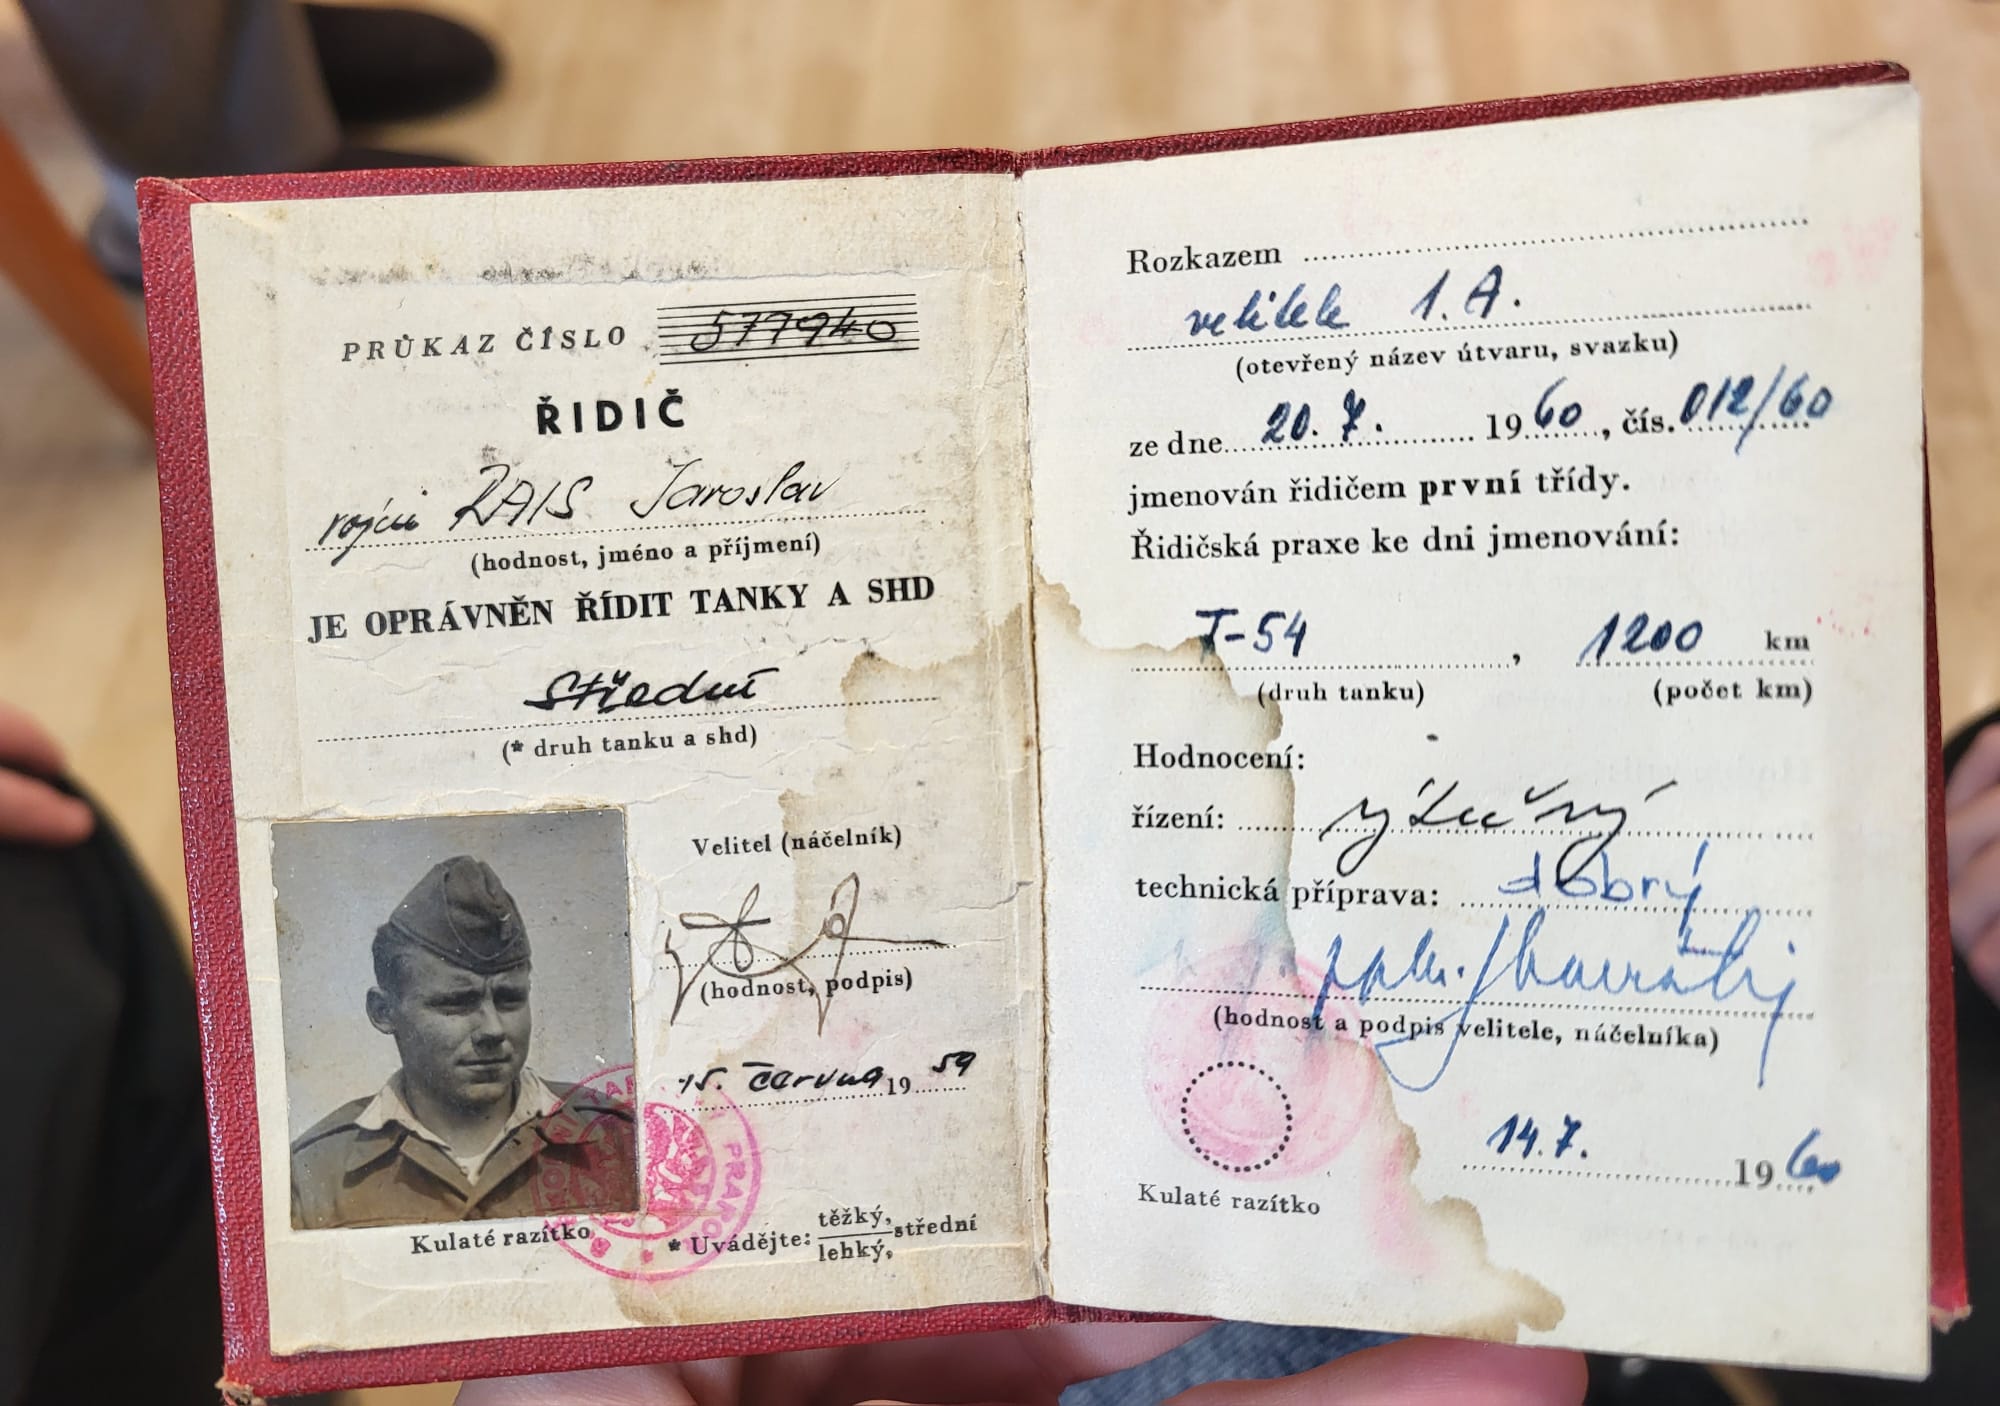 PRŮKAZ ČÍSLO 577940
ŘIDIČ
vojín RAIS Jaroslav
(hodnost, jméno a příjmení)
JE OPRÁVNĚN ŘÍDIT TANKY A SHD
Střední
(* druh tanku a shd)
Velitel (náčelník)
(hodnost, podpis)
15. června 1959
Kulaté razítko
* Uvádějte: těžký, střední
lehký,
Rozkazem
velitele 1. A.
(otevřený název útvaru, svazku)
ze dne 20. 7. 1960, čís. 012/60
jmenován řidičem první třídy.
Řidičská praxe ke dni jmenování:
T-54, 1200 km
(druh tanku) (počet km)
Hodnocení:
řízení: výtečný
technická příprava: dobrý
(hodnost a podpis velitele, náčelníka)
14. 7. 1960
Kulaté razítko